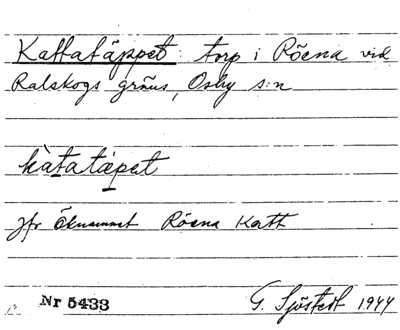 Kattatäppet: torp i Röena vid
Ralskogs gräns, Osby s:n
kàtatäpet
Jfr Öknamnet Röena Katt
Nr 5433 G. Sjöstedt 1944